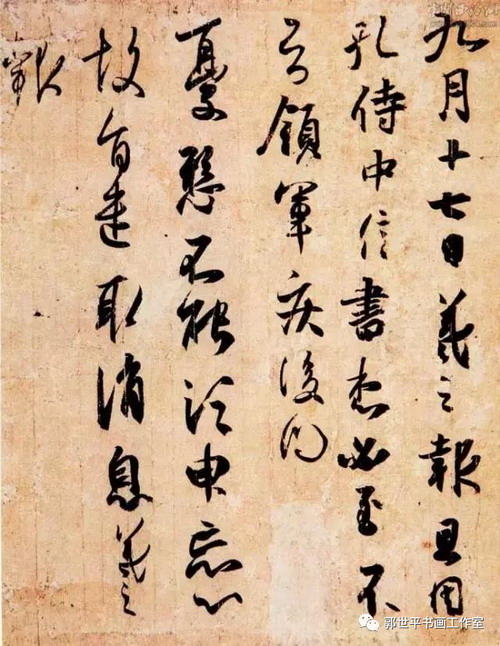 九月十七日羲之報且因
孔侍中信書想必至不
知領軍疾後問
憂懸不能須臾忘心
故旨遣取消息羲之
報
郭世平书画工作室